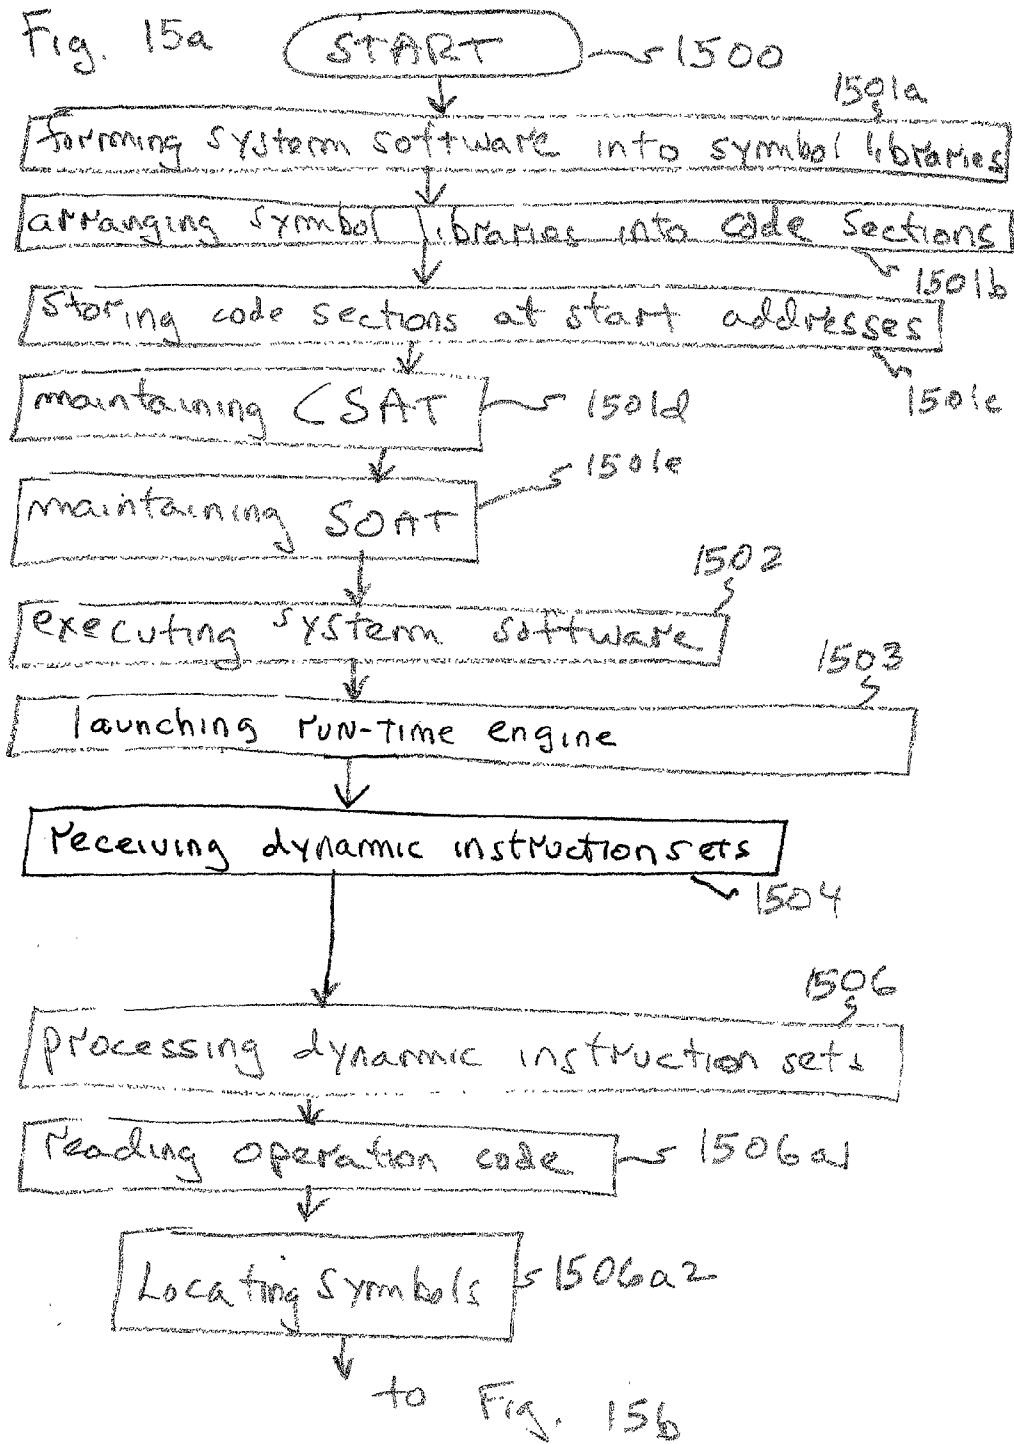 Fig. 15a START 1500
1501a
forming system software into symbol libraries
arranging symbol libraries into code sections
1501b
storing code sections at start addresses
1501c
maintaining CSAT 1501d
1501e
maintaining SOAT
1502
executing system software
1503
launching run-time engine
receiving dynamic instruction sets
1504
1506
processing dynamic instruction sets
reading operation code 1506a1
Locating symbols 1506a2
to Fig. 15b